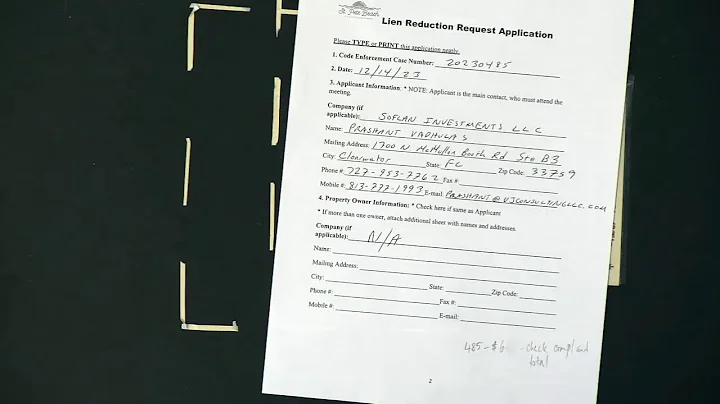 St. Pete Beach
Lien Reduction Request Application
Please TYPE or PRINT this application neatly.
1. Code Enforcement Case Number: 20230485
2. Date: 12/14/23
3. Applicant Information: * NOTE: Applicant is the main contact, who must attend the
meeting.
Company (if
applicable): SOFLAN INVESTMENTS LLC
Name: PRASHANT VADHULAS
Mailing Address: 1700 N. McMullen Booth Rd Ste B3
City: Clearwater State: FL Zip Code: 33759
Phone #: 727-953-7762 Fax #:
Mobile #: 813-777-1993 E-mail: PRASHANT@VJCONSULTINGLLC.COM
4. Property Owner Information: * Check here if same as Applicant
* If more than one owner, attach additional sheet with names and addresses.
Company (if
applicable): N/A
Name:
Mailing Address:
City: State: Zip Code:
Phone #: Fax #:
Mobile #: E-mail:
485-$6 -check compl and
total
2